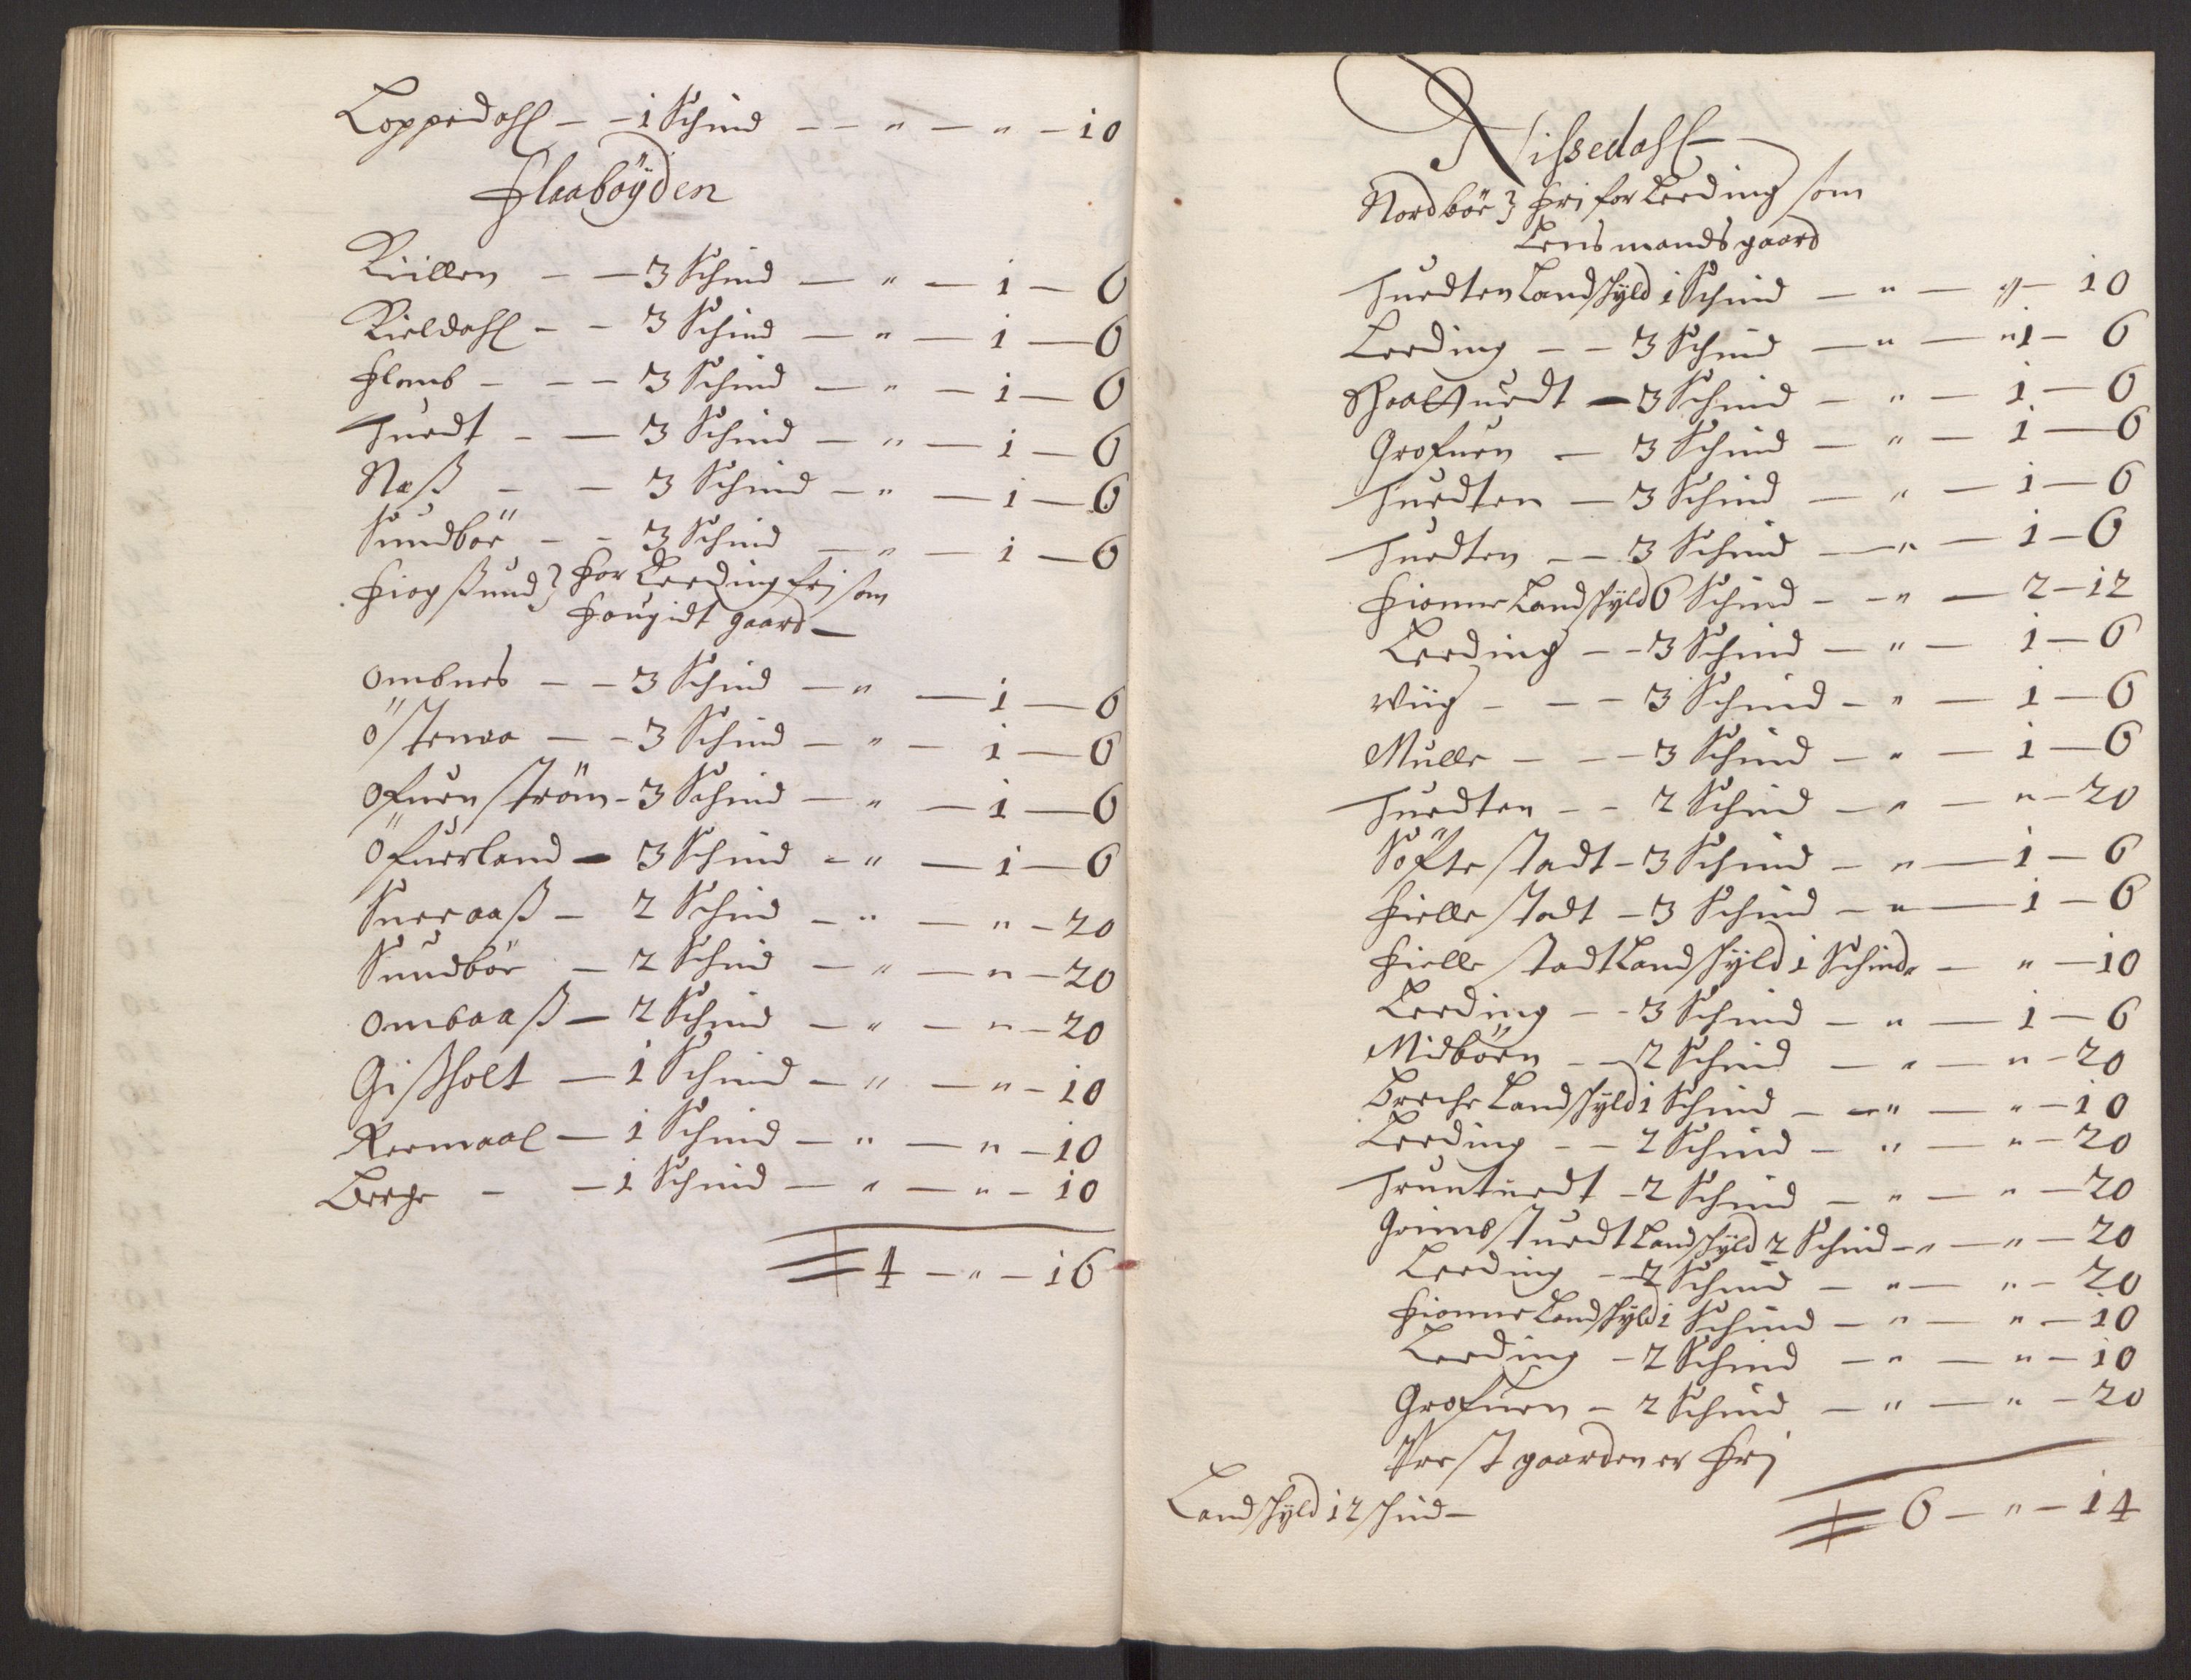 Loppedahl - - 1 Schind - - " - " - 10
Flaabøÿden
Kiillen - - 3 Schind - " - 1 - 6
Kieldahl - - 3 Schind - " - 1 - 6
Flomb - - - 3 Schind - " - 1 - 6
Tuedt - - 3 Schind - " - 1 - 6
Næß - - 3 Schind - " - 1 - 6
Sundböe - - 3 Schind - " - 1 - 6
Fiogßund } For Leeding frj som
Fougidt gaard -
Ombnes - - 3 Schind - " - 1 - 6
Östenaa - - 3 Schind - " - 1 - 6
Ofuenström - 3 Schind - " - 1 - 6
Öfuerland - 3 Schind - " - 1 - 6
Sneeaaß - 2 Schind - " - " - 20
Sundböe - 2 Schind - " - " - 20
Ombaaß - 2 Schind - " - " - 20
Gißholt - 1 Schind - " - " - 10
Reemaal - 1 Schind - " - " - 10
Berge - - 1 Schind - " - " - 10
4 - " - 16
Nissedahl
Nordböe } frj for Leeding som
Lensmands gaard
Tuedten Landschÿld 1 Schind - " - " - 10
Leeding - - 3 Schind - " - " 1 - 6
Haaltuedt - 3 Schind - " - 1 - 6
Grofuen - 3 Schind - " - 1 - 6
Tuedten - 3 Schind - " - 1 - 6
Tuedten - - 3 Schind - " - 1 - 6
Fionne Landschÿld 6 Schind - - " - 2 - 12
Leeding - - 3 Schind - " - 1 - 6
Wiig - - - 3 Schind - " - 1 - 6
Mulle - - - 3 Schind - " - 1 - 6
Tuedten - - 2 Schind - " - " - 20
Söftestadt - 3 Schind - " - 1 - 6
Fiellestadt - 3 Schind - " - 1 - 6
Fiellestadt Landschÿld 1 Schind " - " - 10
Leeding - - 3 Schind - " - 1 - 6
Midböen - - 2 Schind - " - " - 20
Berche Landschÿld 1 Schind - - " - " - 10
Leeding - - 2 Schind - " - " - 20
Trontuedt - 2 Schind - " - " - 20
Grimbstuedt Landschÿld 2 Schind - " - " - 20
Leeding - 2 Schind - " - " - 20
Fionne Landschÿld 1 Schind - " - " - 10
Leeding - 2 Schind - " - " - 10
Grofuen - 2 Schind - " - " - 20
Prestgaarden er frj
Landschÿld 12 schind -
6 - " - 14